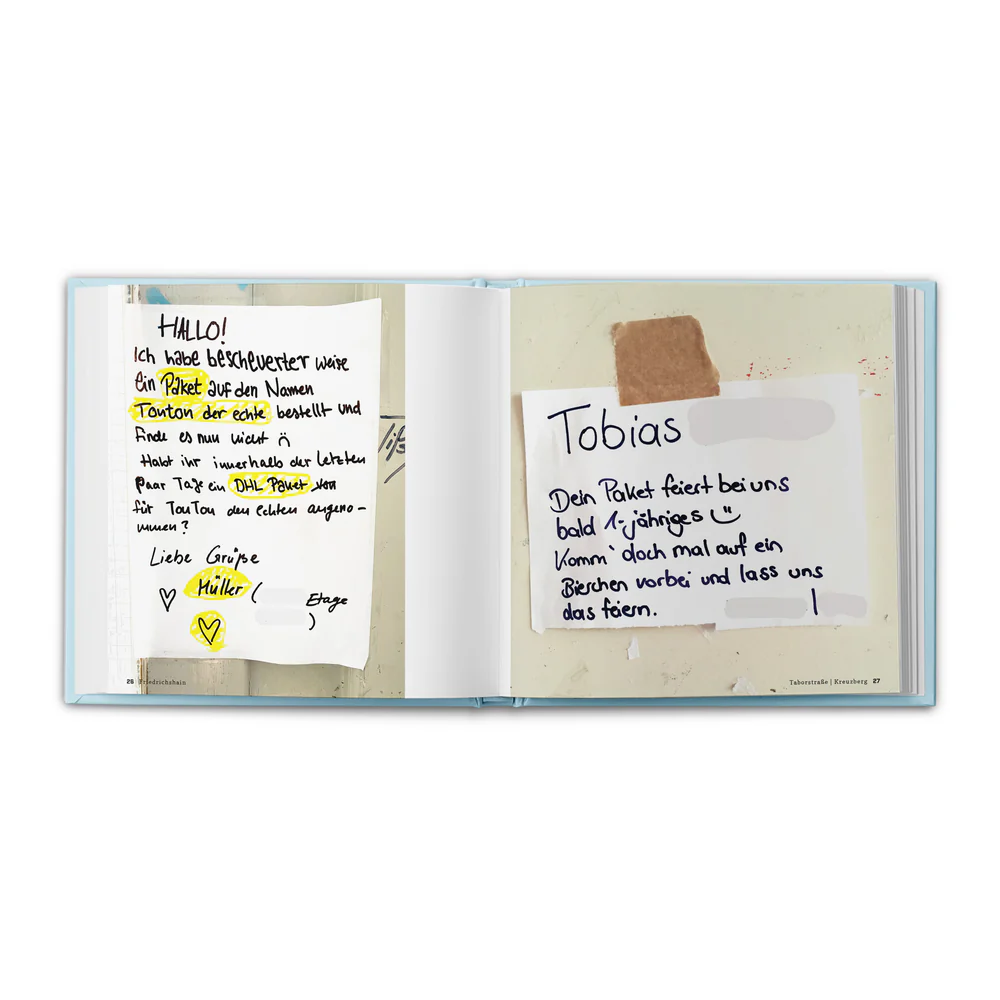 HALLO!
Ich habe bescheuerter weise
ein Paket auf den Namen
Tonton der echte bestellt und
finde es nun nicht
Habt ihr innerhalb der letzten
paar Tage ein DHL Paket
für TonTon den echten angeno-
mmen?
Liebe Grüße
Müller (
Etage
)
26 Friedrichshain
Tobias
Dein Paket feiert bei uns
bald 1-jähriges
Komm' doch mal auf ein
Bierchen vorbei und lass uns
das feiern.
Taborstraße | Kreuzberg 27